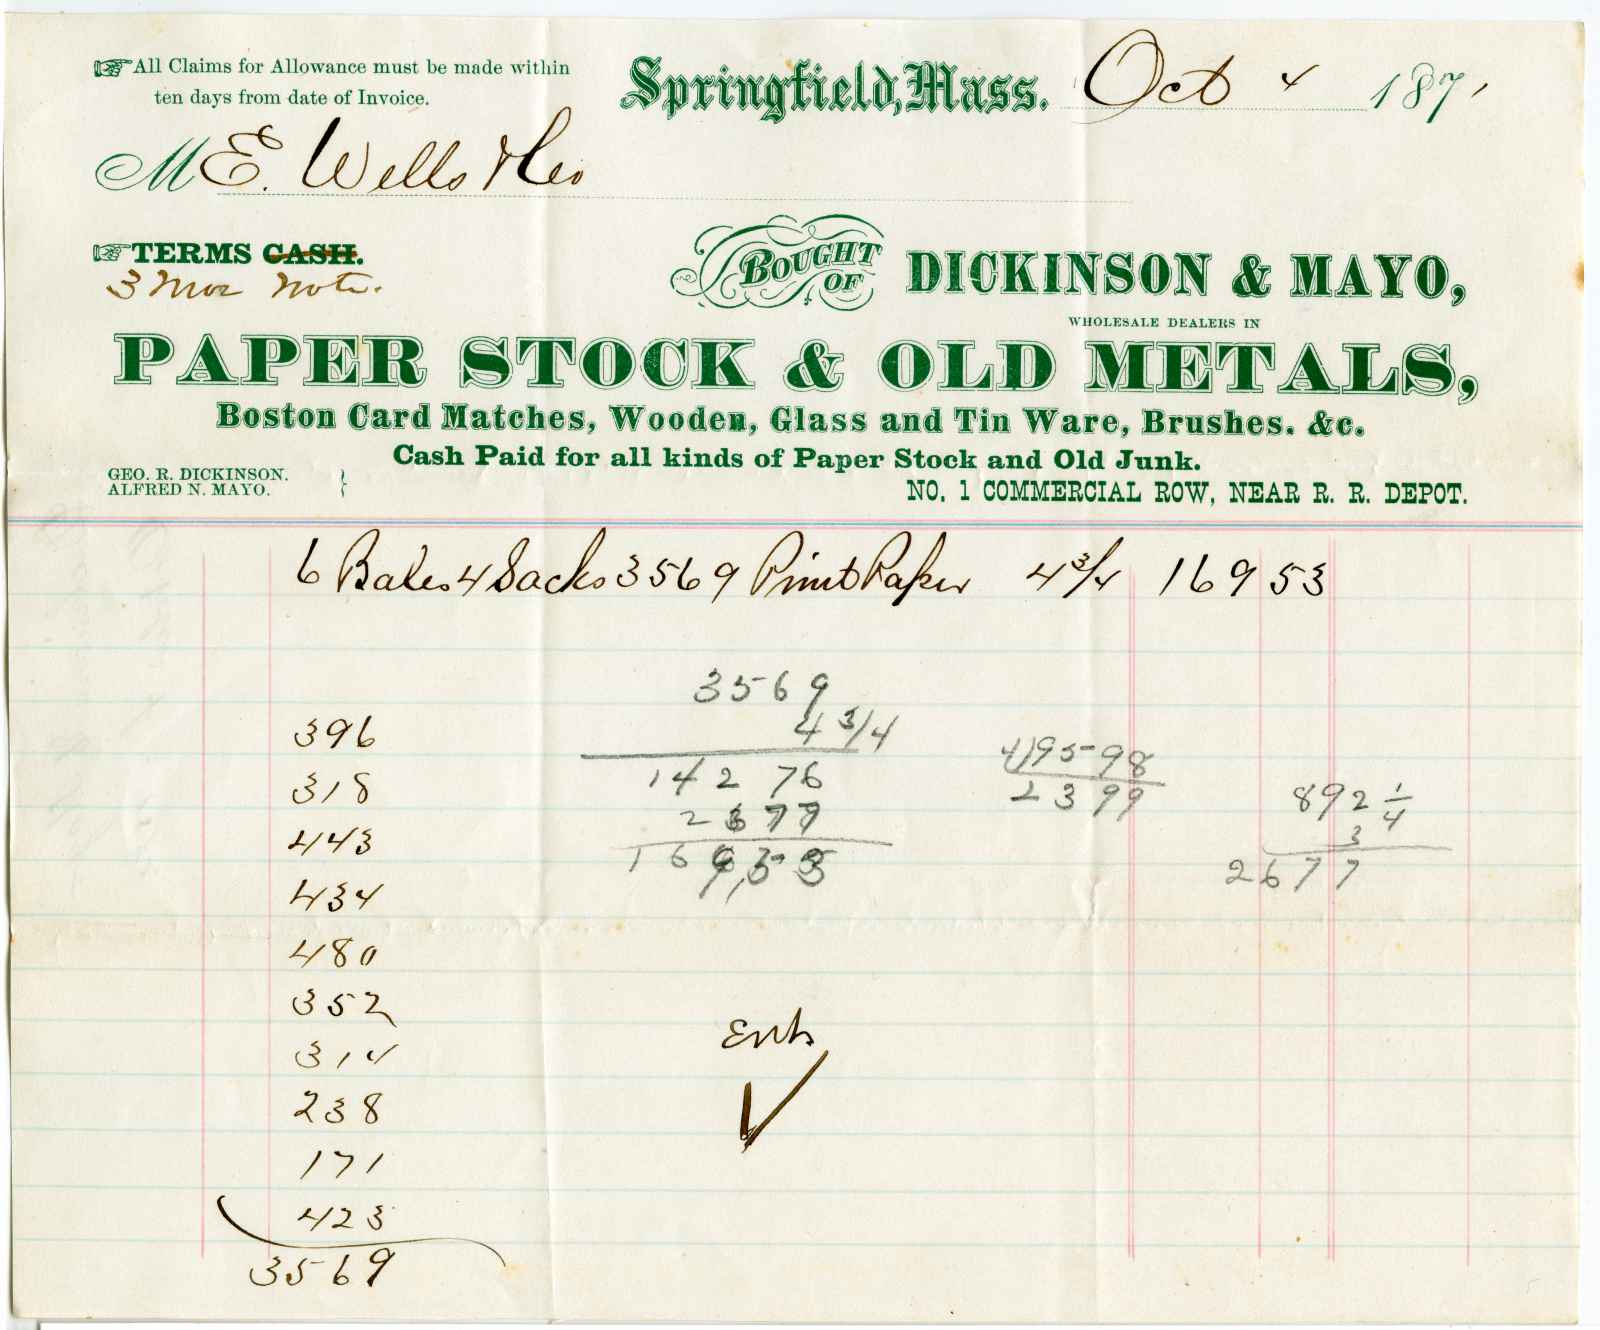 All Claims for Allowance must be made within
ten days from date of Invoice.
Springfield, Mass. Oct 4 1871
M E. Wells & Co
TERMS CASH.
3 Mos Note.
BOUGHT OF DICKINSON & MAYO,
WHOLESALE DEALERS IN
PAPER STOCK & OLD METALS,
Boston Card Matches, Wooden, Glass and Tin Ware, Brushes. &c.
Cash Paid for all kinds of Paper Stock and Old Junk.
GEO. R. DICKINSON.
ALFRED N. MAYO.
NO. 1 COMMERCIAL ROW, NEAR R. R. DEPOT.
6 Bales 4 Sacks 3569 Print Paper 4 3/4 169 53
396
318
443
434
480
352
314
238
171
423
3569
3569
4 3/4
142 76
2677
4)95-98
2399
892 1/4
3
2677